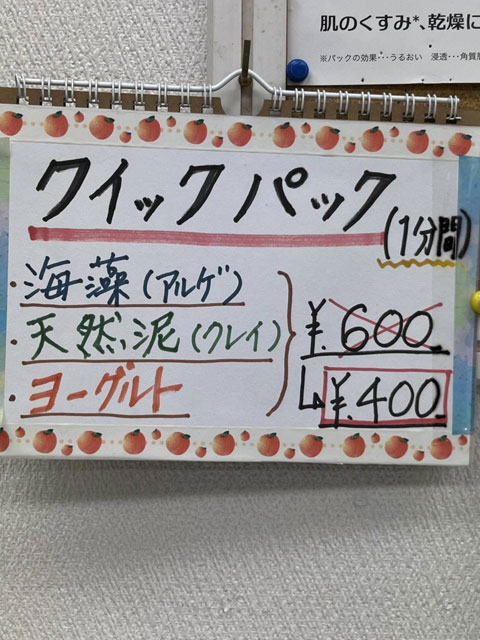 肌のくすみ*、乾燥に
※パックの効果…うるおい 浸透…角質層
クイックパック
(1分間)
・海藻(アルゲ)
・天然泥(クレイ)
・ヨーグルト
¥.600
↳¥.400